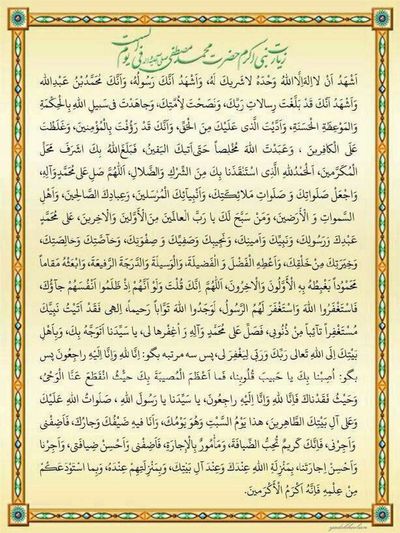 زیارت نبی اکرم حضرت محمد مصطفی فی یوم السبت
اَشْهَدُ اَنْ لااِلهَ اِلاَّ اللهُ وَحْدَهُ لاشَریكَ لَهُ، وَاَشْهَدُ اَنَّكَ رَسُولُهُ، وَاَنَّكَ مُحَمَّدُ بْنُ عَبْدِاللهِ
وَاَشْهَدُ اَنَّكَ قَدْ بَلَّغْتَ رِسالاتِ رَبِّكَ، وَنَصَحْتَ لاُِمَّتِكَ، وَجاهَدْتَ فی سَبیلِ اللهِ بِالْحِكْمَةِ
وَالْمَوْعِظَةِ الْحَسَنَةِ، وَاَدَّیْتَ الَّذی عَلَیْكَ مِنَ الْحَقِّ، وَاَنَّكَ قَدْ رَؤُفْتَ بِالْمُؤْمِنینَ، وَغَلَظْتَ
عَلَی الْكافِرینَ ، وَعَبَدْتَ اللهَ مُخْلِصاً حَتّی اَتیكَ الیَقینُ، فَبَلَغَ اللهُ بِكَ اشَرَفَ مَحَلِّ
الْمُكَرَّمینَ، اَلْحَمْدُ للهِ الَّذِی اسْتَنْقَذَنا بِكَ مِنَ الشِّرْكِ وَالضَّلالِ، اَللّهُمَّ صَلِّ عَلی مُحَمَّدٍ وَآلِهِ،
وَاجْعَلْ صَلَواتِكَ وَ صَلَواتِ مَلائِكَتِكَ، وَاَنْبِیآئِكَ الْمُرْسَلینَ، وَعِبادِكَ الصَّالِحینَ، وَاَهْلِ
السَّمواتِ وَ الْأَرَضینَ، وَمَنْ سَبَّحَ لَكَ یا رَبَّ الْعالَمینَ مِنَ الاَْوَّلینَ وَالاْخِرینَ، عَلی مُحَمَّدٍ
عَبْدِكَ وَرَسُولِكَ، وَنَبِیِّكَ وَاَمینِكَ، وَنَجیبِكَ وَصَفِیِّكَ وَ صِفْوَتِكَ، وَخآصَّتِكَ وَخالِصَتِكَ،
وَخِیَرَتِكَ مِنْ خَلْقِكَ، وَاَعْطِهِ الْفَضْلَ وَ الْفَضیلَةَ، وَالْوَسیلَةَ وَالدَّرَجَةَ الرَّفیعَةَ، وَابْعَثْهُ مَقاماً
مَحْمُوداً یَغْبِطُهُ بِهِ الاَْوَّلُونَ وَالاْخِرُونَ، اَللّهُمَّ اِنَّكَ قُلْتَ وَلَوْ اَنَّهُمْ اِذْ ظَلَمُوا اَنْفُسَهُمْ جآؤُكَ،
فَاسْتَغْفَرُوا اللهَ وَاسْتَغْفَرَ لَهُمُ الرَّسُولُ، لَوَجَدُوا اللهَ تَوَّاباً رَحیماً، اِلهی فَقَدْ اَتَیْتُ نَبِیَّكَ
مُسْتَغْفِراً تآئِباً مِنْ ذُنُوبی، فَصَلِّ عَلی مُحَمَّدٍ وَآلِهِ وَ اغْفِرْها لی، یا سَیِّدَنا اَتَوَجَّهُ بِكَ، وَبِاَهْلِ
بَیْتِكَ اِلَی اللهِ تَعالی رَبِّكَ وَرَبّی لِیَغْفِرَ لی، پس سه مرتبه بگو: اِنَّا للهِ وَاِنَّا اِلَیْهِ راجِعُونَ پس
بگو: اُصِبْنا بِكَ یا حَبیبَ قُلُوبِنا، فَما اَعْظَمَ الْمُصیبَةَ بِكَ حیْثُ انْقَطَعَ عَنَّا الْوَحْیُ،
وَحَیْثُ فَقَدْناكَ فَاِنَّا للهِ وَاِنَّا اِلَیْهِ راجِعُونَ، یا سَیِّدَنا یا رَسُولَ اللهِ ، صَلَواتُ اللهِ عَلَیْكَ
وَعَلی آلِ بَیْتِكَ الطَّاهِرینَ، هذا یَوْمُ السَّبْتِ وَهُوَ یَوْمُكَ، وَاَنَا فیهِ ضَیْفُكَ وَجارُكَ، فَاَضِفْنی
وَاَجِرْنی، فَاِنَّكَ كَریمٌ تُحِبُّ الضِّیافَةَ، وَمَاْمُورٌ بِالاِْجارَةِ، فَاَضِفْنی وَاَحْسِنْ ضِیافَتی، وَاَجِرْنا
وَاَحْسِنْ اِجارَتَنا، بِمَنْزِلَةِ اللهِ عِنْدَكَ وَعِنْدَ آلِ بَیْتِكَ، وَبِمَنْزِلَتِهِمْ عِنْدَهُ، وَبِما اسْتَوْدَعَكُمْ
مِنْ عِلْمِهِ فَاِنَّهُ اَكْرَمُ الاَْكْرَمینَ.